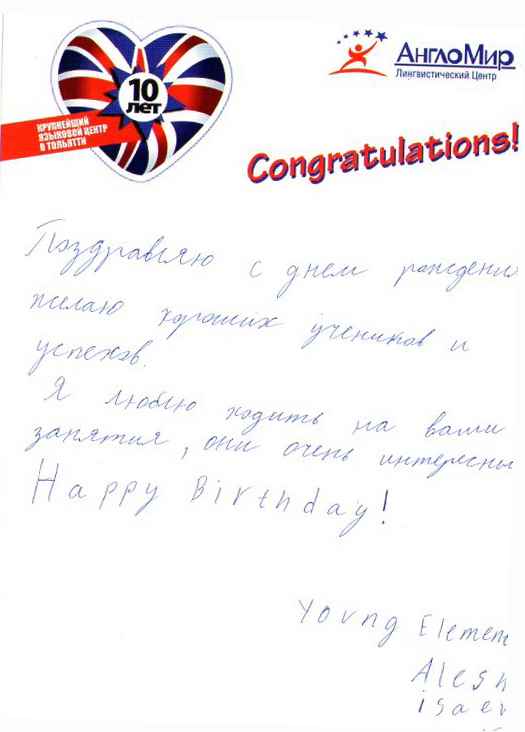 10
ЛЕТ
КРУПНЕЙШИЙ
ЯЗЫКОВОЙ ЦЕНТР
В ТОЛЬЯТТИ
АнглоМир
Лингвистический Центр
Congratulations!
Поздравляю с днем рождени
желаю хороших учеников и
успехов.
Я люблю ходить на ваши
занятия, они очень интересны
Happy Birthday!
Young Elemen
Alesh
isaev